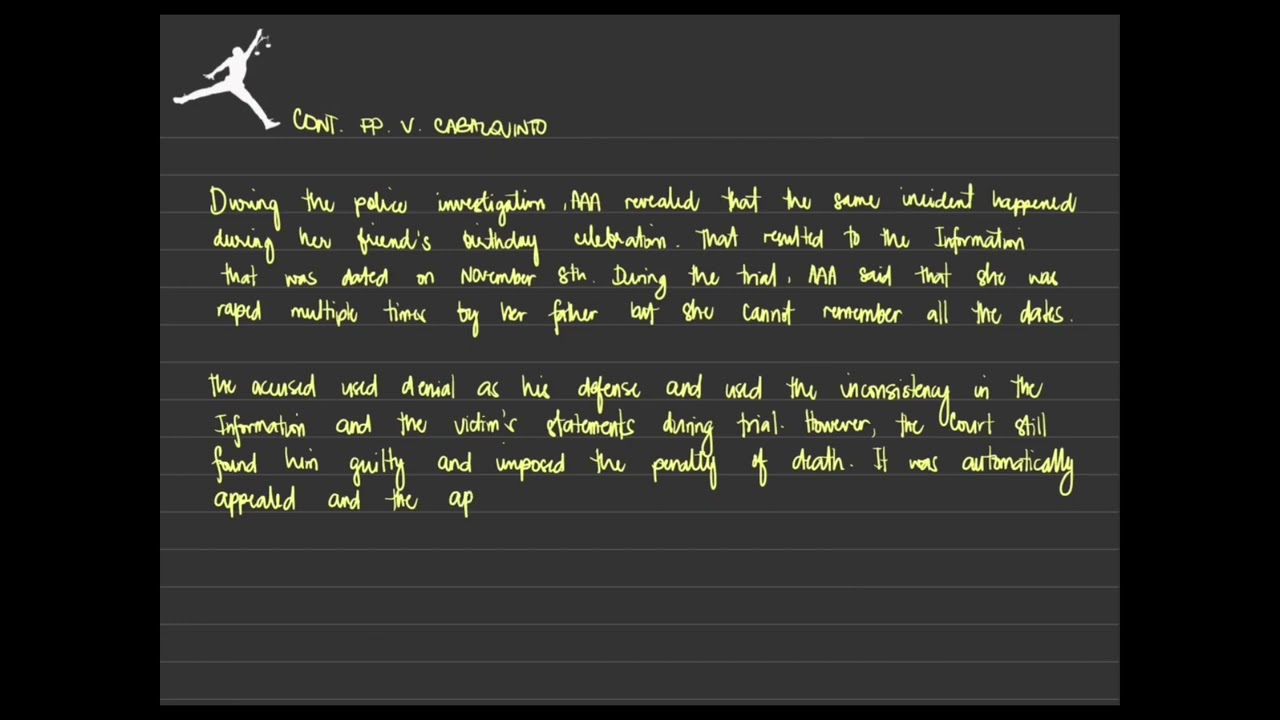 CONT. PP. V. CABALQUINTO
During the police investigation, AAA revealed that the same incident happened
during her friend's birthday celebration. That resulted to the Information
that was dated on November 8th. During the trial, AAA said that she was
raped multiple times by her father but she cannot remember all the dates.
The accused used denial as his defense and used the inconsistency in the
Information and the victim's statements during trial. However, the Court still
found him guilty and imposed the penalty of death. It was automatically
appealed and the ap